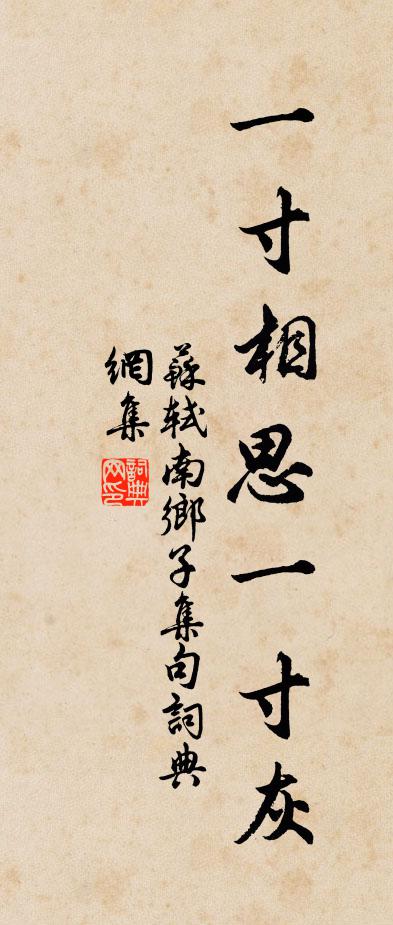 一寸相思一寸灰
蘇軾南鄉子集句詞典
網集
詞典
网印